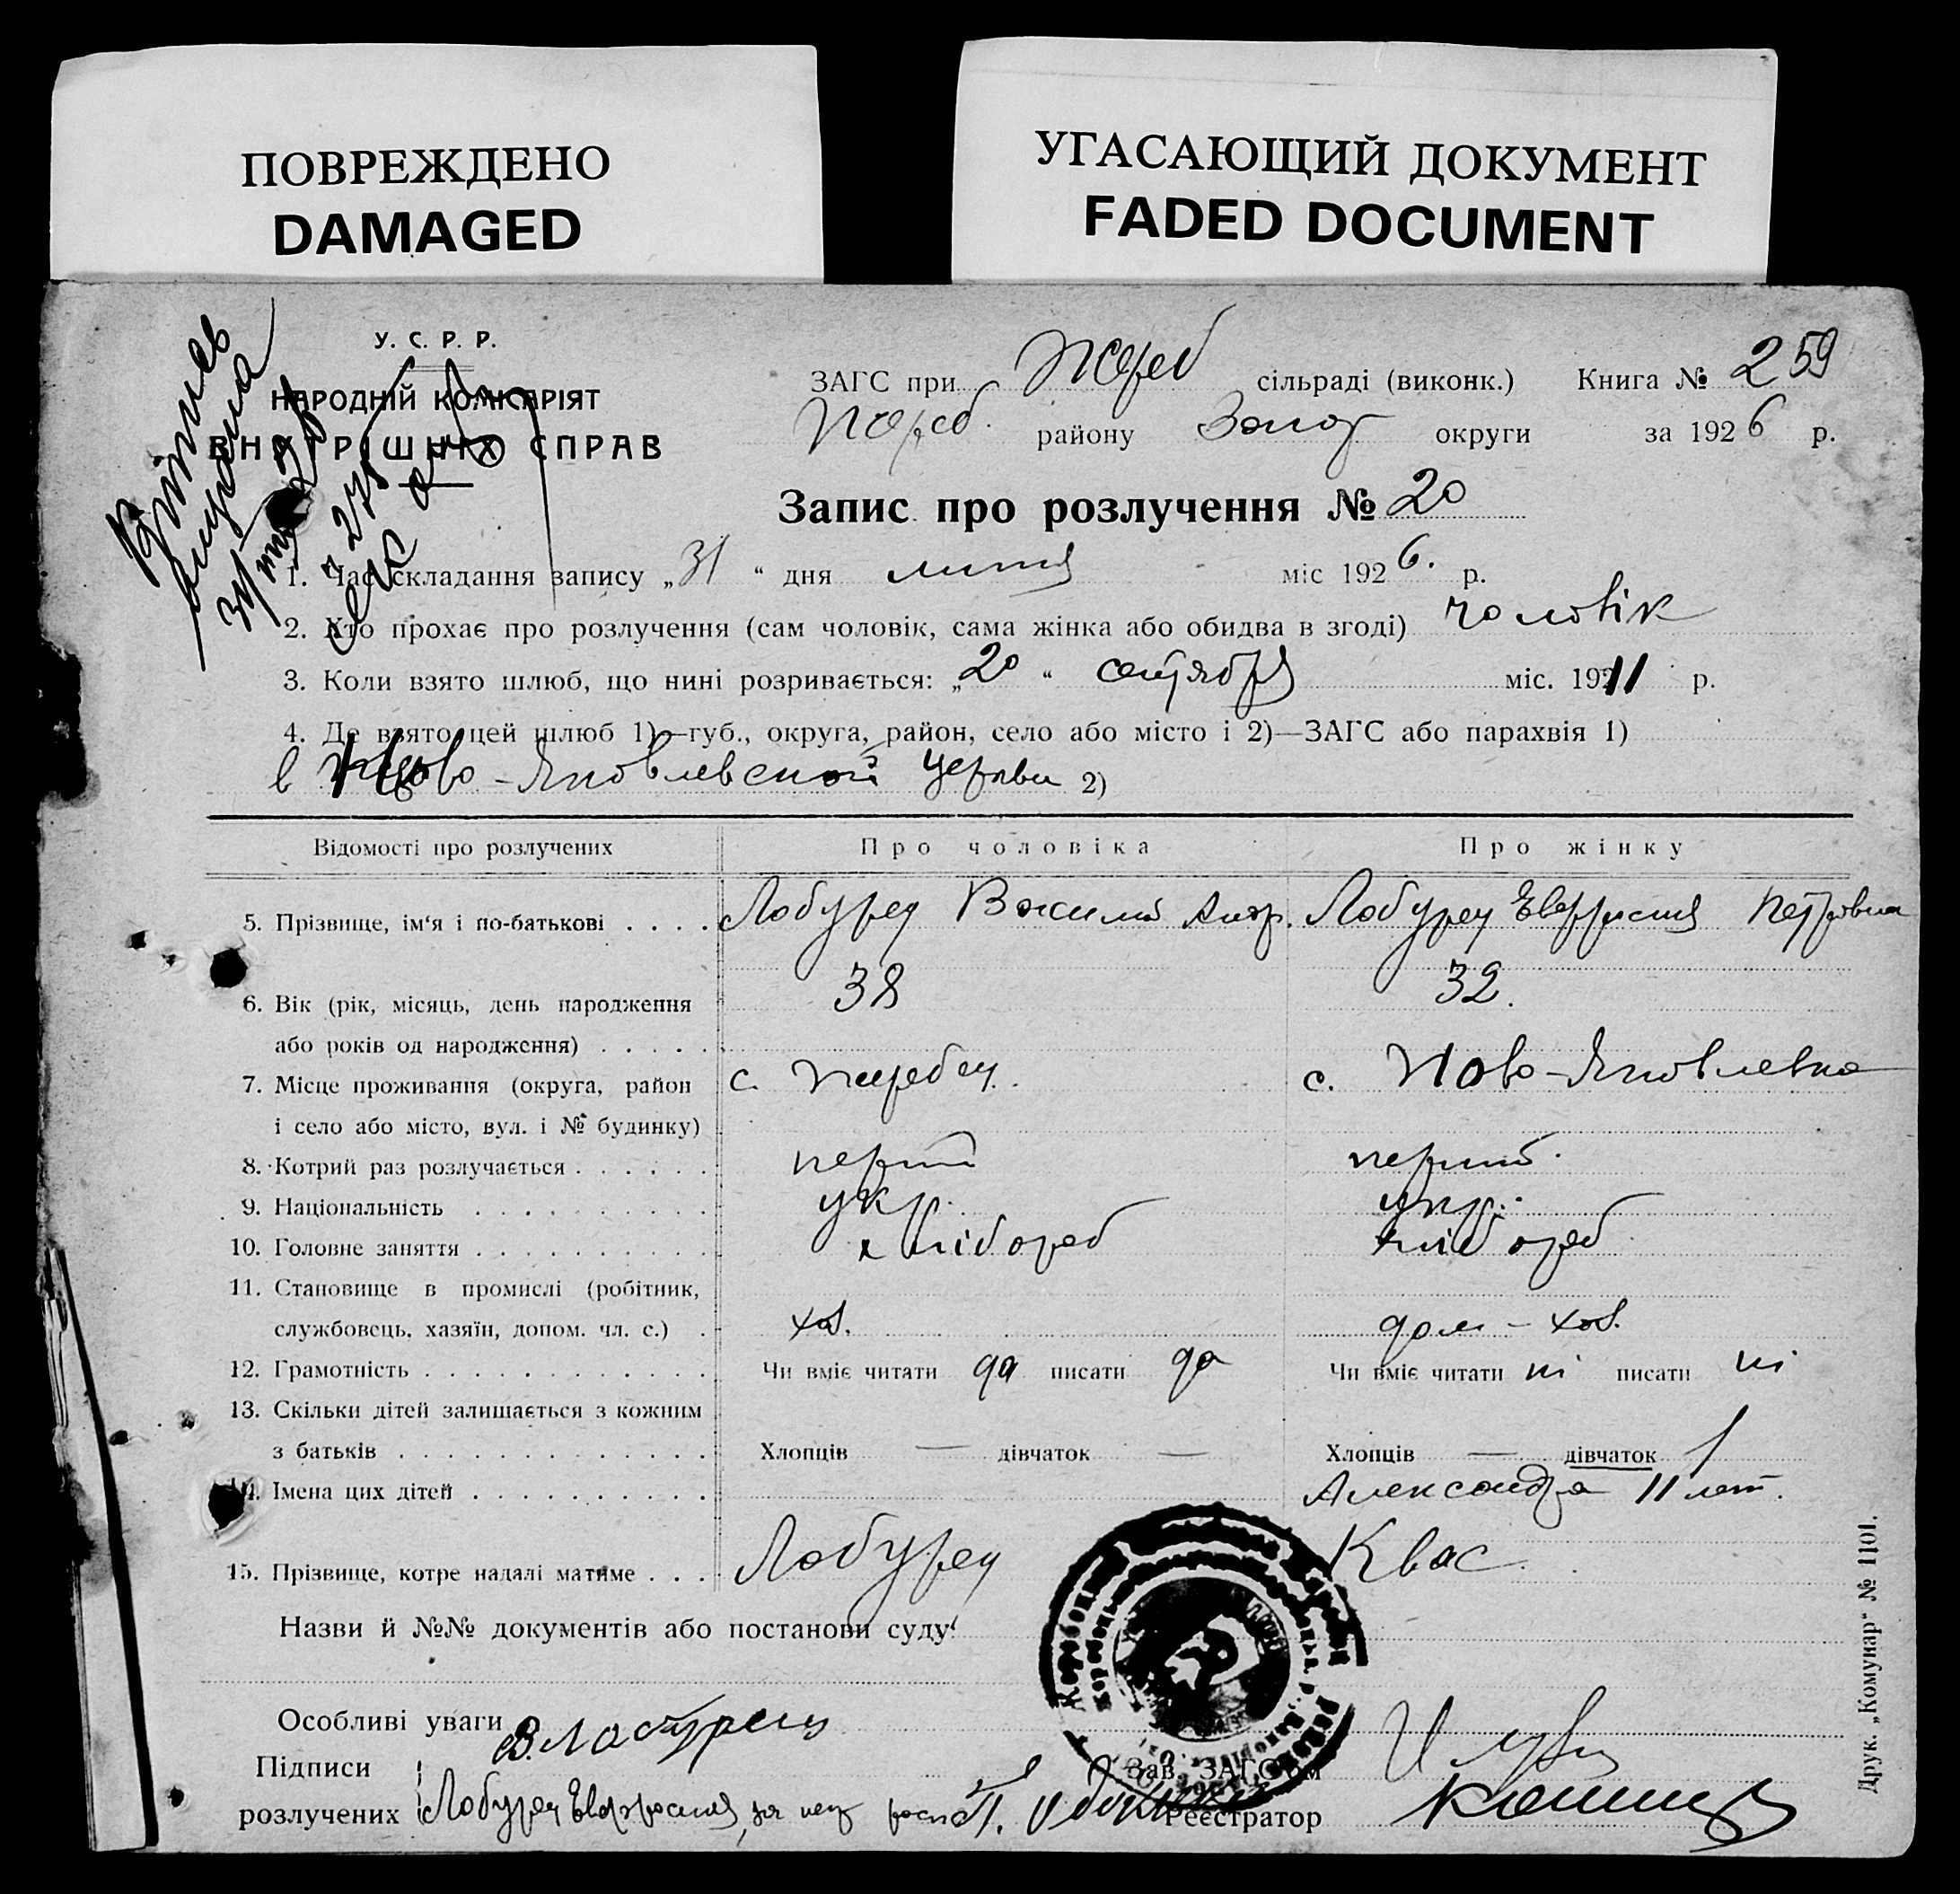 ПОВРЕЖДЕНО
DAMAGED
УГАСАЮЩИЙ ДОКУМЕНТ
FADED DOCUMENT
У. С. Р. Р.
НАРОДНІЙ КОМІСАРІЯТ
ВНУТРІШНІХ СПРАВ
ЗАГС при Жереб сільраді (виконк.) Книга № 259
Жереб. району Запор округи за 1926 р.
Запис про розлучення № 20
1. Час складання запису „31“ дня липня міс 1926. р.
2. Хто прохає про розлучення (сам чоловік, сама жінка або обидва в згоді) чоловік
3. Коли взято шлюб, що нині розривається: „20“ сентября міс. 1911 р.
4. Де взято цей шлюб 1)—губ., округа, район, село або місто і 2)—ЗАГС або парахвія 1)
в Ново-Яковлевской церкви 2)
Відомості про розлучених Про чоловіка Про жінку
5. Прізвище, ім‘я і по-батькові . . . . Лобурец Василий Лобурец Евфросиния Петровна
6. Вік (рік, місяць, день народження 38 32.
або років од народження) . . . . .
7. Місце проживання (округа, район с. Жеребец. с. Ново-Яковлевка
і село або місто, вул. і № будинку)
8. Котрий раз розлучається . . . . . . перший перший.
9. Національність . . . . . . . . . . укр. укр.
10. Головне заняття . . . . . . . . . . хлібороб хлібороб
11. Становище в промислі (робітник,
службовець, хазяїн, допом. чл. с.) . хоз. дом-хоз.
12. Грамотність . . . . . . . . . . . . Чи вміє читати да писати да Чи вміє читати ні писати ні
13. Скільки дітей залишається з кожним
з батьків . . . . . . . . . . . . . Хлопців — дівчаток — Хлопців — дівчаток 1
14. Імена цих дітей . . . . . . . . . . Александра 11 лет.
15. Прізвище, котре надалі матиме . . . Лобурец Квас.
Назви й №№ документів або постанови суду
Особливі уваги В. Лобурец
Підписи Зав. ЗАГС'ом
розлучених Лобурец Евфросиния, за неу Реєстратор
Друк. „Комунар“ № 1101.